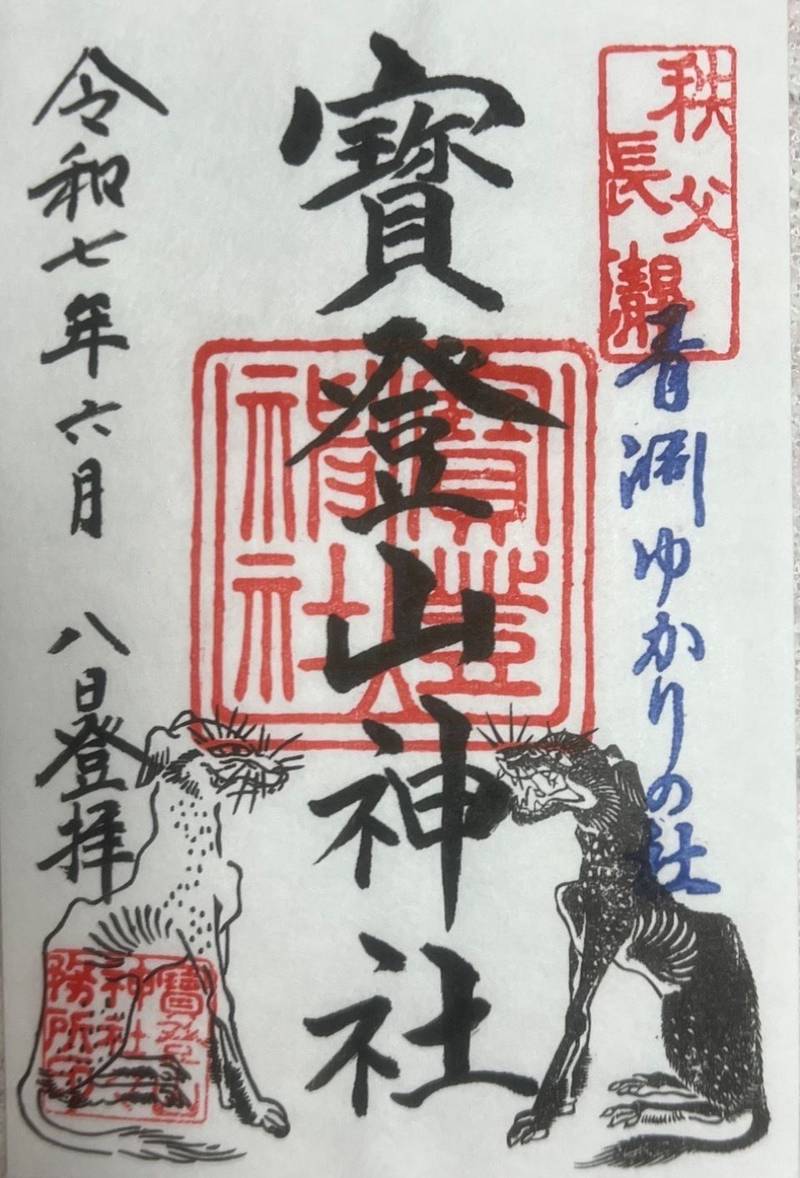 秩父
長瀞
青淵ゆかりの社
寳登山神社
寳登山
神社
令和七年六月 八日登拝
寳登山
神社之
務所印